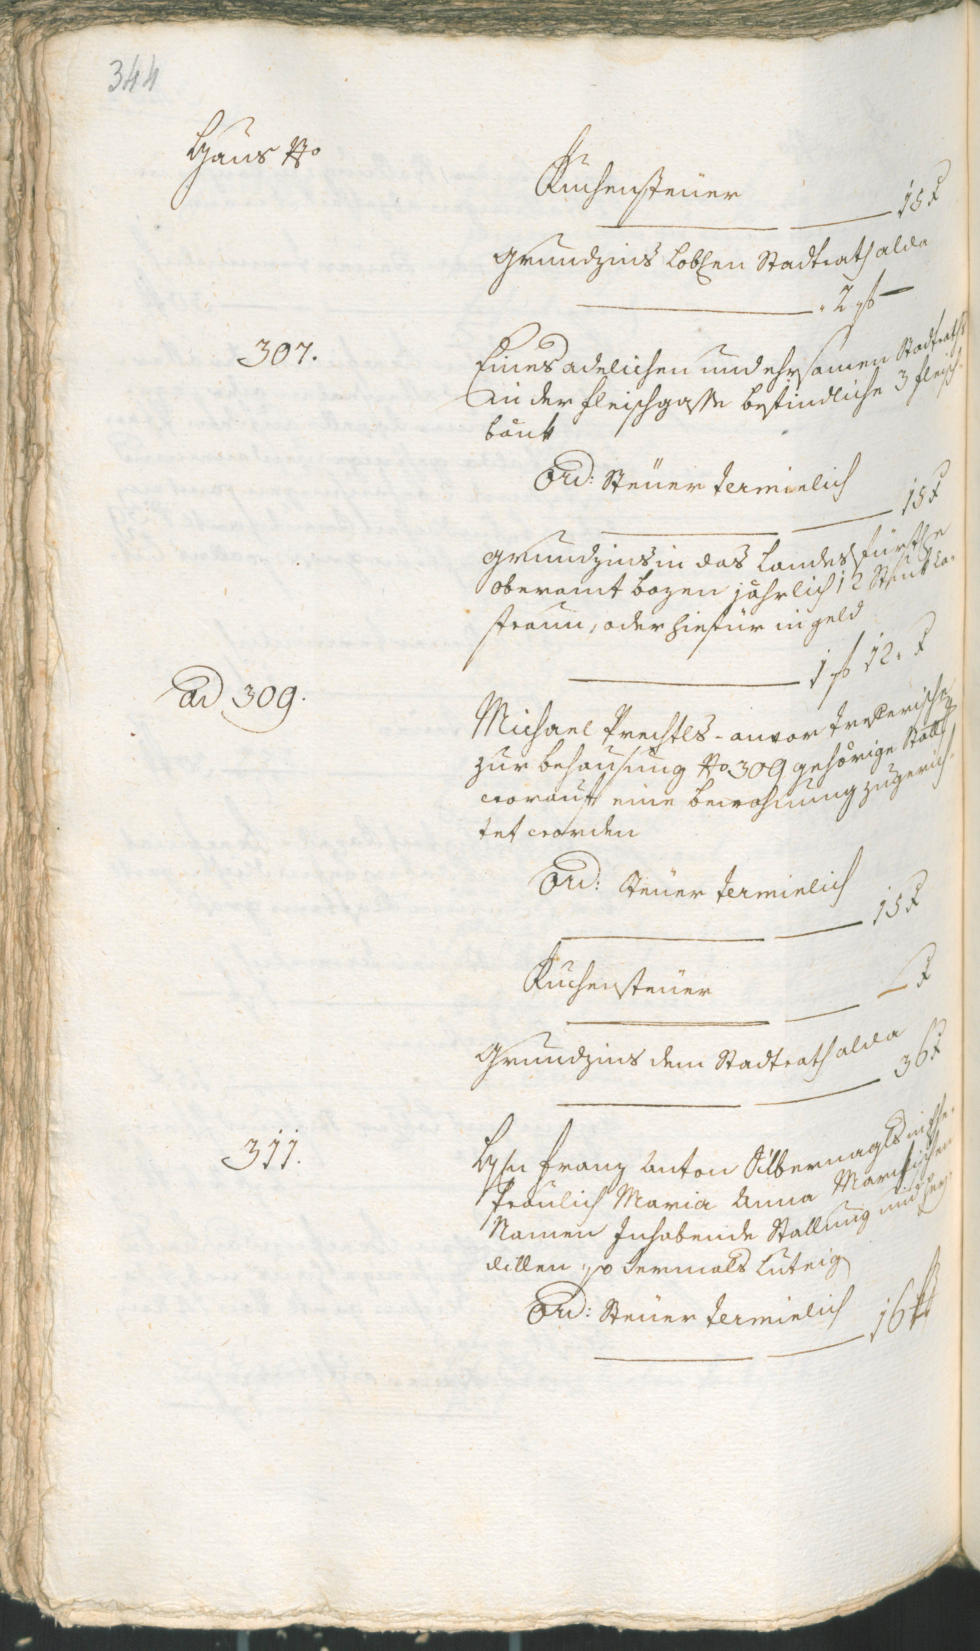 344
Haus No
Kuchensteüer
15 x
Grundzins Lobl:en Stadtrath alda
2 fl —
307.
Eines adelichen und ehrsamen Stadtraths
in der Fleischgasse befindliche 3 Fleisch-
bänk
Ord: Steüer Terminlich
15 x
Grundzins in das Landesfürstl:e
Oberamt Bozen jährlich 12 Stuk Ca-
straun, oder hiefür in geld
1 fl 12. x
ad 309.
Michael Prechtls - anvor
zur behausung No 309 gehörige Stall
worauf eine bewohnung zugerich-
tet worden
Ord: Steüer Terminlich
15 x
Kuchensteüer
— x
Grundzins dem Stadtrath alda
36 x
311.
H:n Franz Anton Silbernagls
fräulich Maria Anna
Namen Inhabende Stallung und
dillen so dermals Luteig
Ord: Steüer Terminlich
16